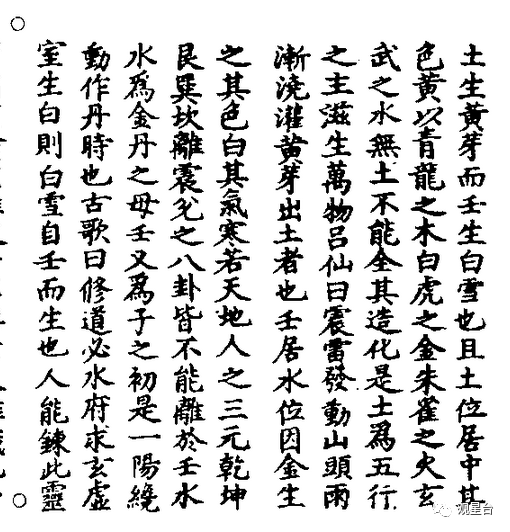 土生黃芽而壬生白雪也且土位居中其
色黃以青龍之木白虎之金朱雀之火玄
武之水無土不能全其造化是土爲五行
之主滋生萬物呂仙曰震雷發動山頭雨
漸澆灌黃芽出土者也壬居水位因金生
之其色白其氣寒若天地人之三元乾坤
艮巽坎離震兌之八卦皆不能離於壬水
水爲金丹之母壬又爲子之初是一陽纔
動作丹時也古歌曰修道必水府求玄虛
室生白則白雪自壬而生也人能鍊此靈
观星台